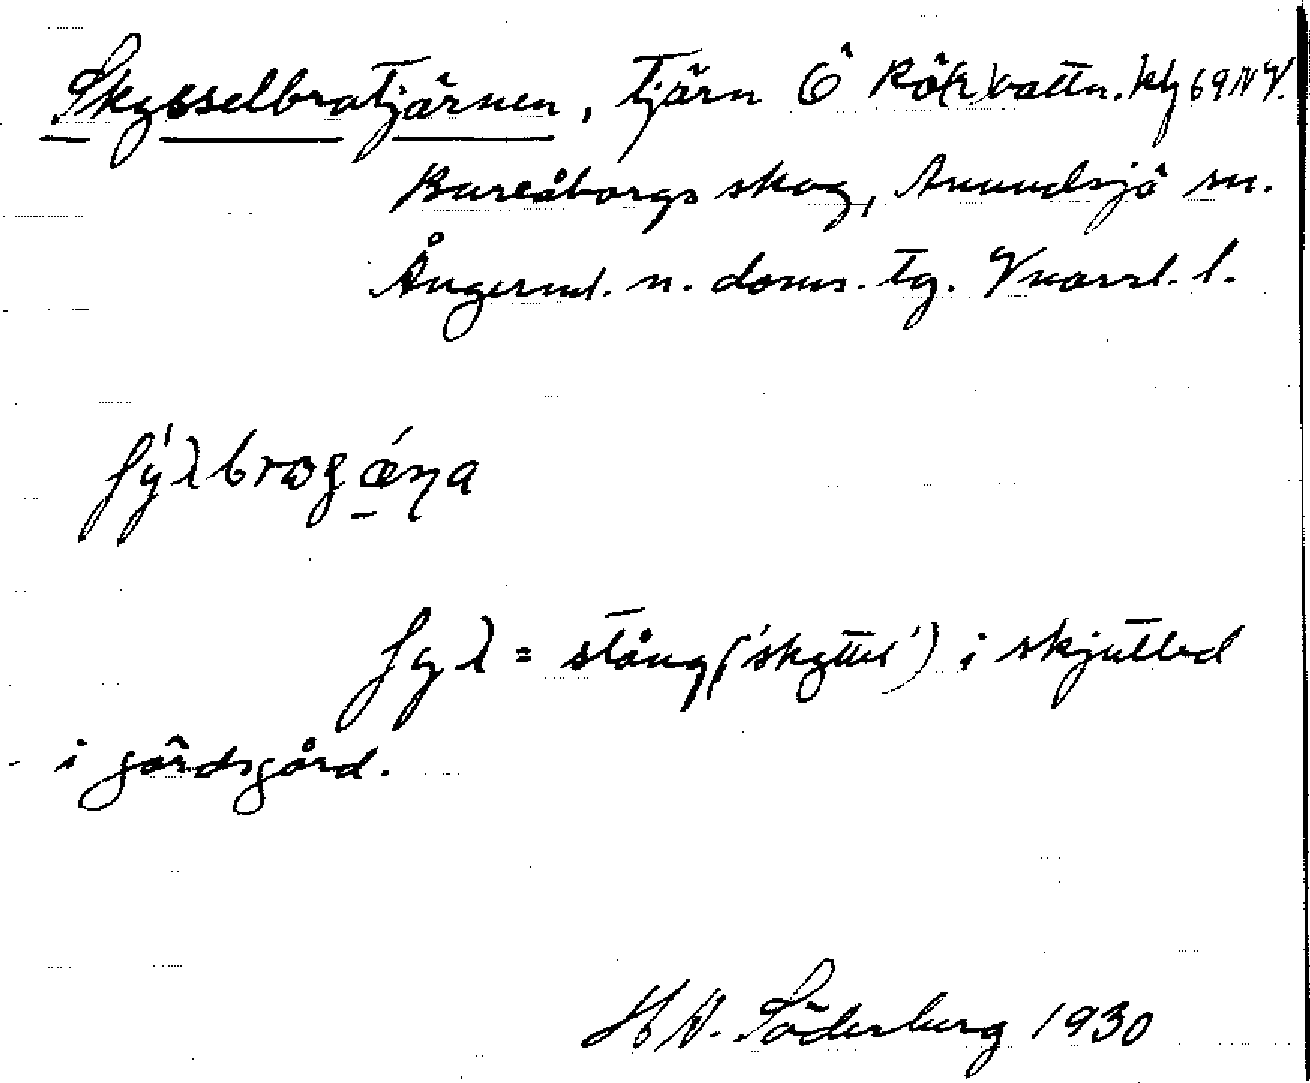 Skysselbratjärnen, tjärn Ö Rö(k)vattn. kbl 69 NV.
Bureåborgs skog, Anundsjö sn.
Ångerml. n. doms. tg. Vnorrl. l.
ʃý̀λbrogǽŋa
ʃyλ = stång ('skyttel') i skjutled
i gärdsgård.
H W. Söderberg 1930